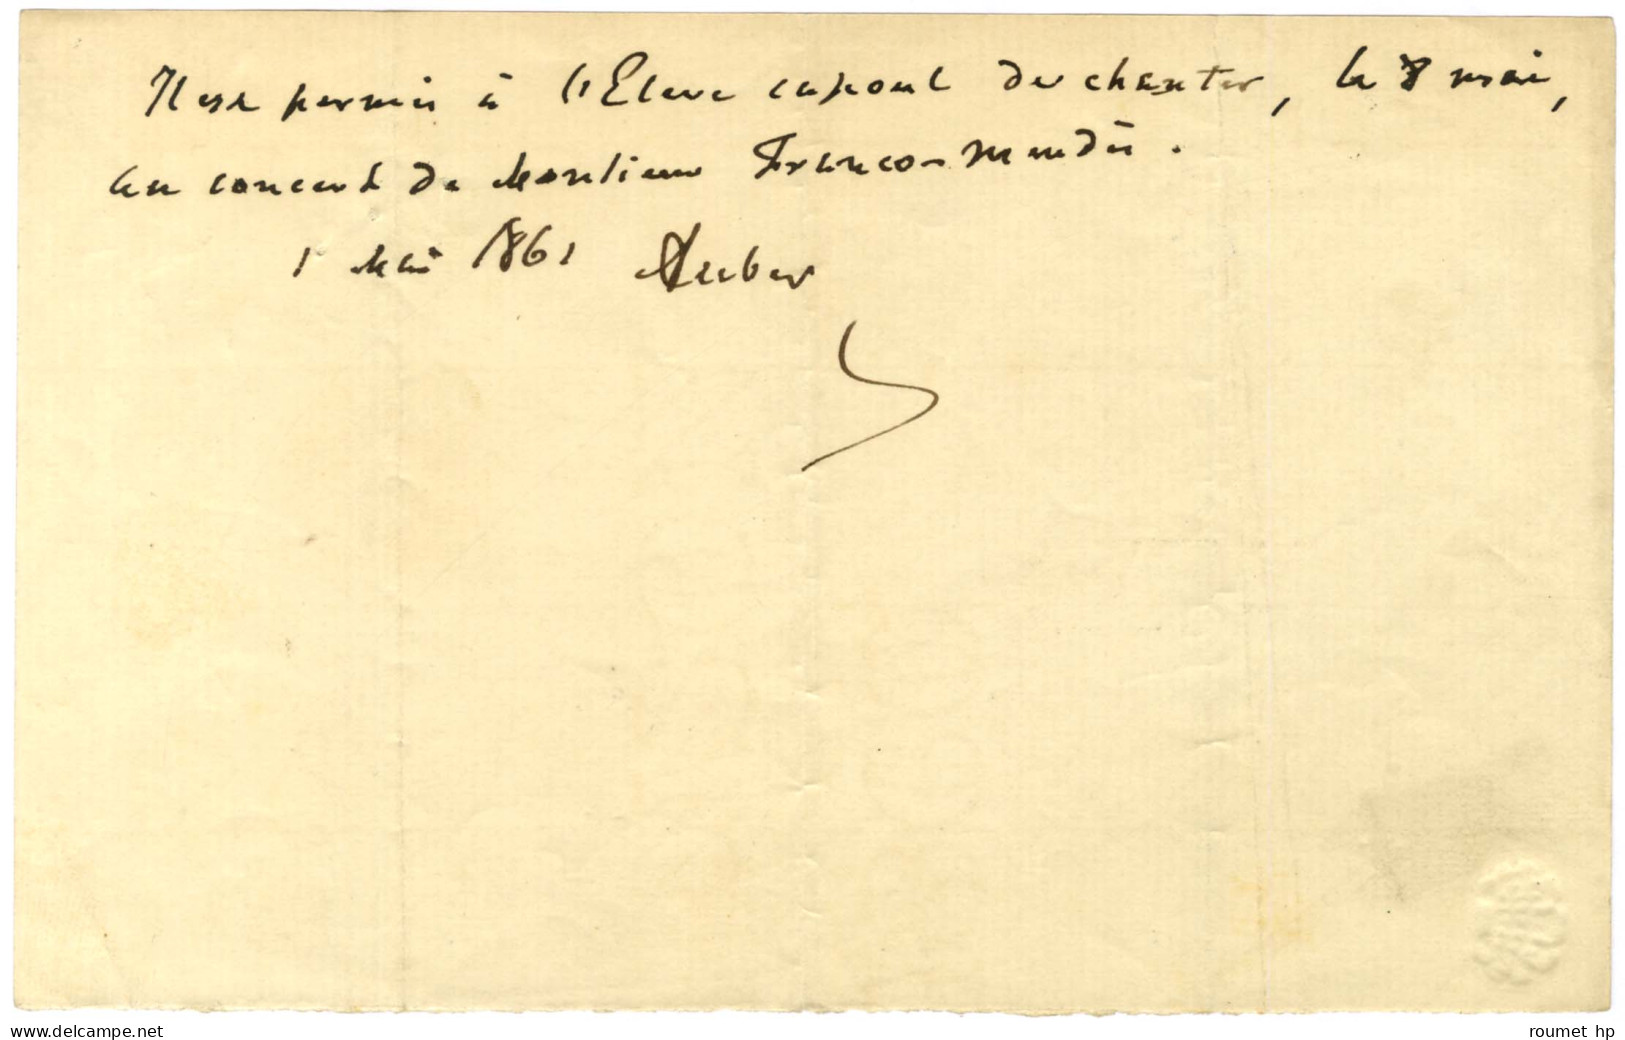 Il est permis à l'Elève capoul de chanter, le 8 mai,
au concert de Monsieur Franco-Mendès.
1 Mai 1861 Auber
www.delcampe.net
roumet hp